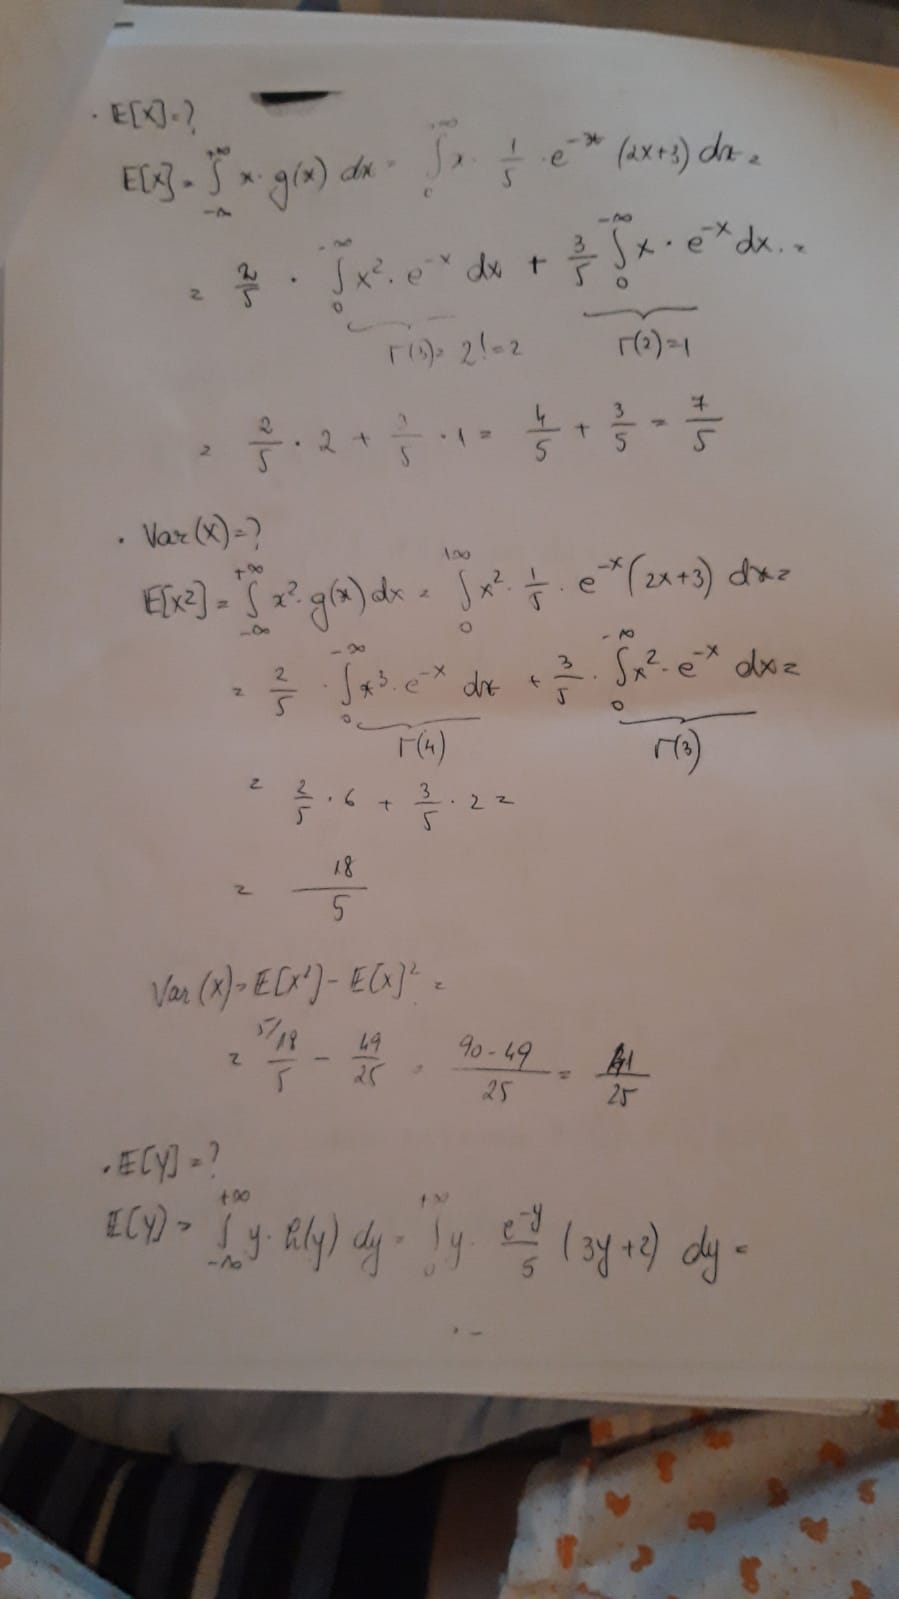 · E[X]=?
E[X] = ∫_{-∞}^{+∞} x · g(x) dx = ∫_{0}^{+∞} x · 1/5 · e^{-x} (2x+3) dx =
= 2/5 · ∫_{0}^{-∞} x² · e^{-x} dx + 3/5 ∫_{0}^{-∞} x · e^{-x} dx. =
Γ(3) = 2! = 2 Γ(2)=1
= 2/5 · 2 + 3/5 · 1 = 4/5 + 3/5 = 7/5
· Var(X)=?
E[X²] = ∫_{-∞}^{+∞} x² · g(x) dx = ∫_{0}^{+∞} x² · 1/5 · e^{-x} (2x+3) dx =
= 2/5 · ∫_{0}^{-∞} x³ · e^{-x} dx + 3/5 · ∫_{0}^{-∞} x² · e^{-x} dx =
Γ(4) Γ(3)
= 2/5 · 6 + 3/5 · 2 =
= 18/5
Var(X) = E[X²] - E[X]² =
= 5/ 18/5 - 49/25 = 90-49/25 = 41/25
· E[Y] = ?
E[Y] = ∫_{-∞}^{+∞} y · h(y) dy = ∫_{0}^{+∞} y · e^{-y}/5 (3y+2) dy =